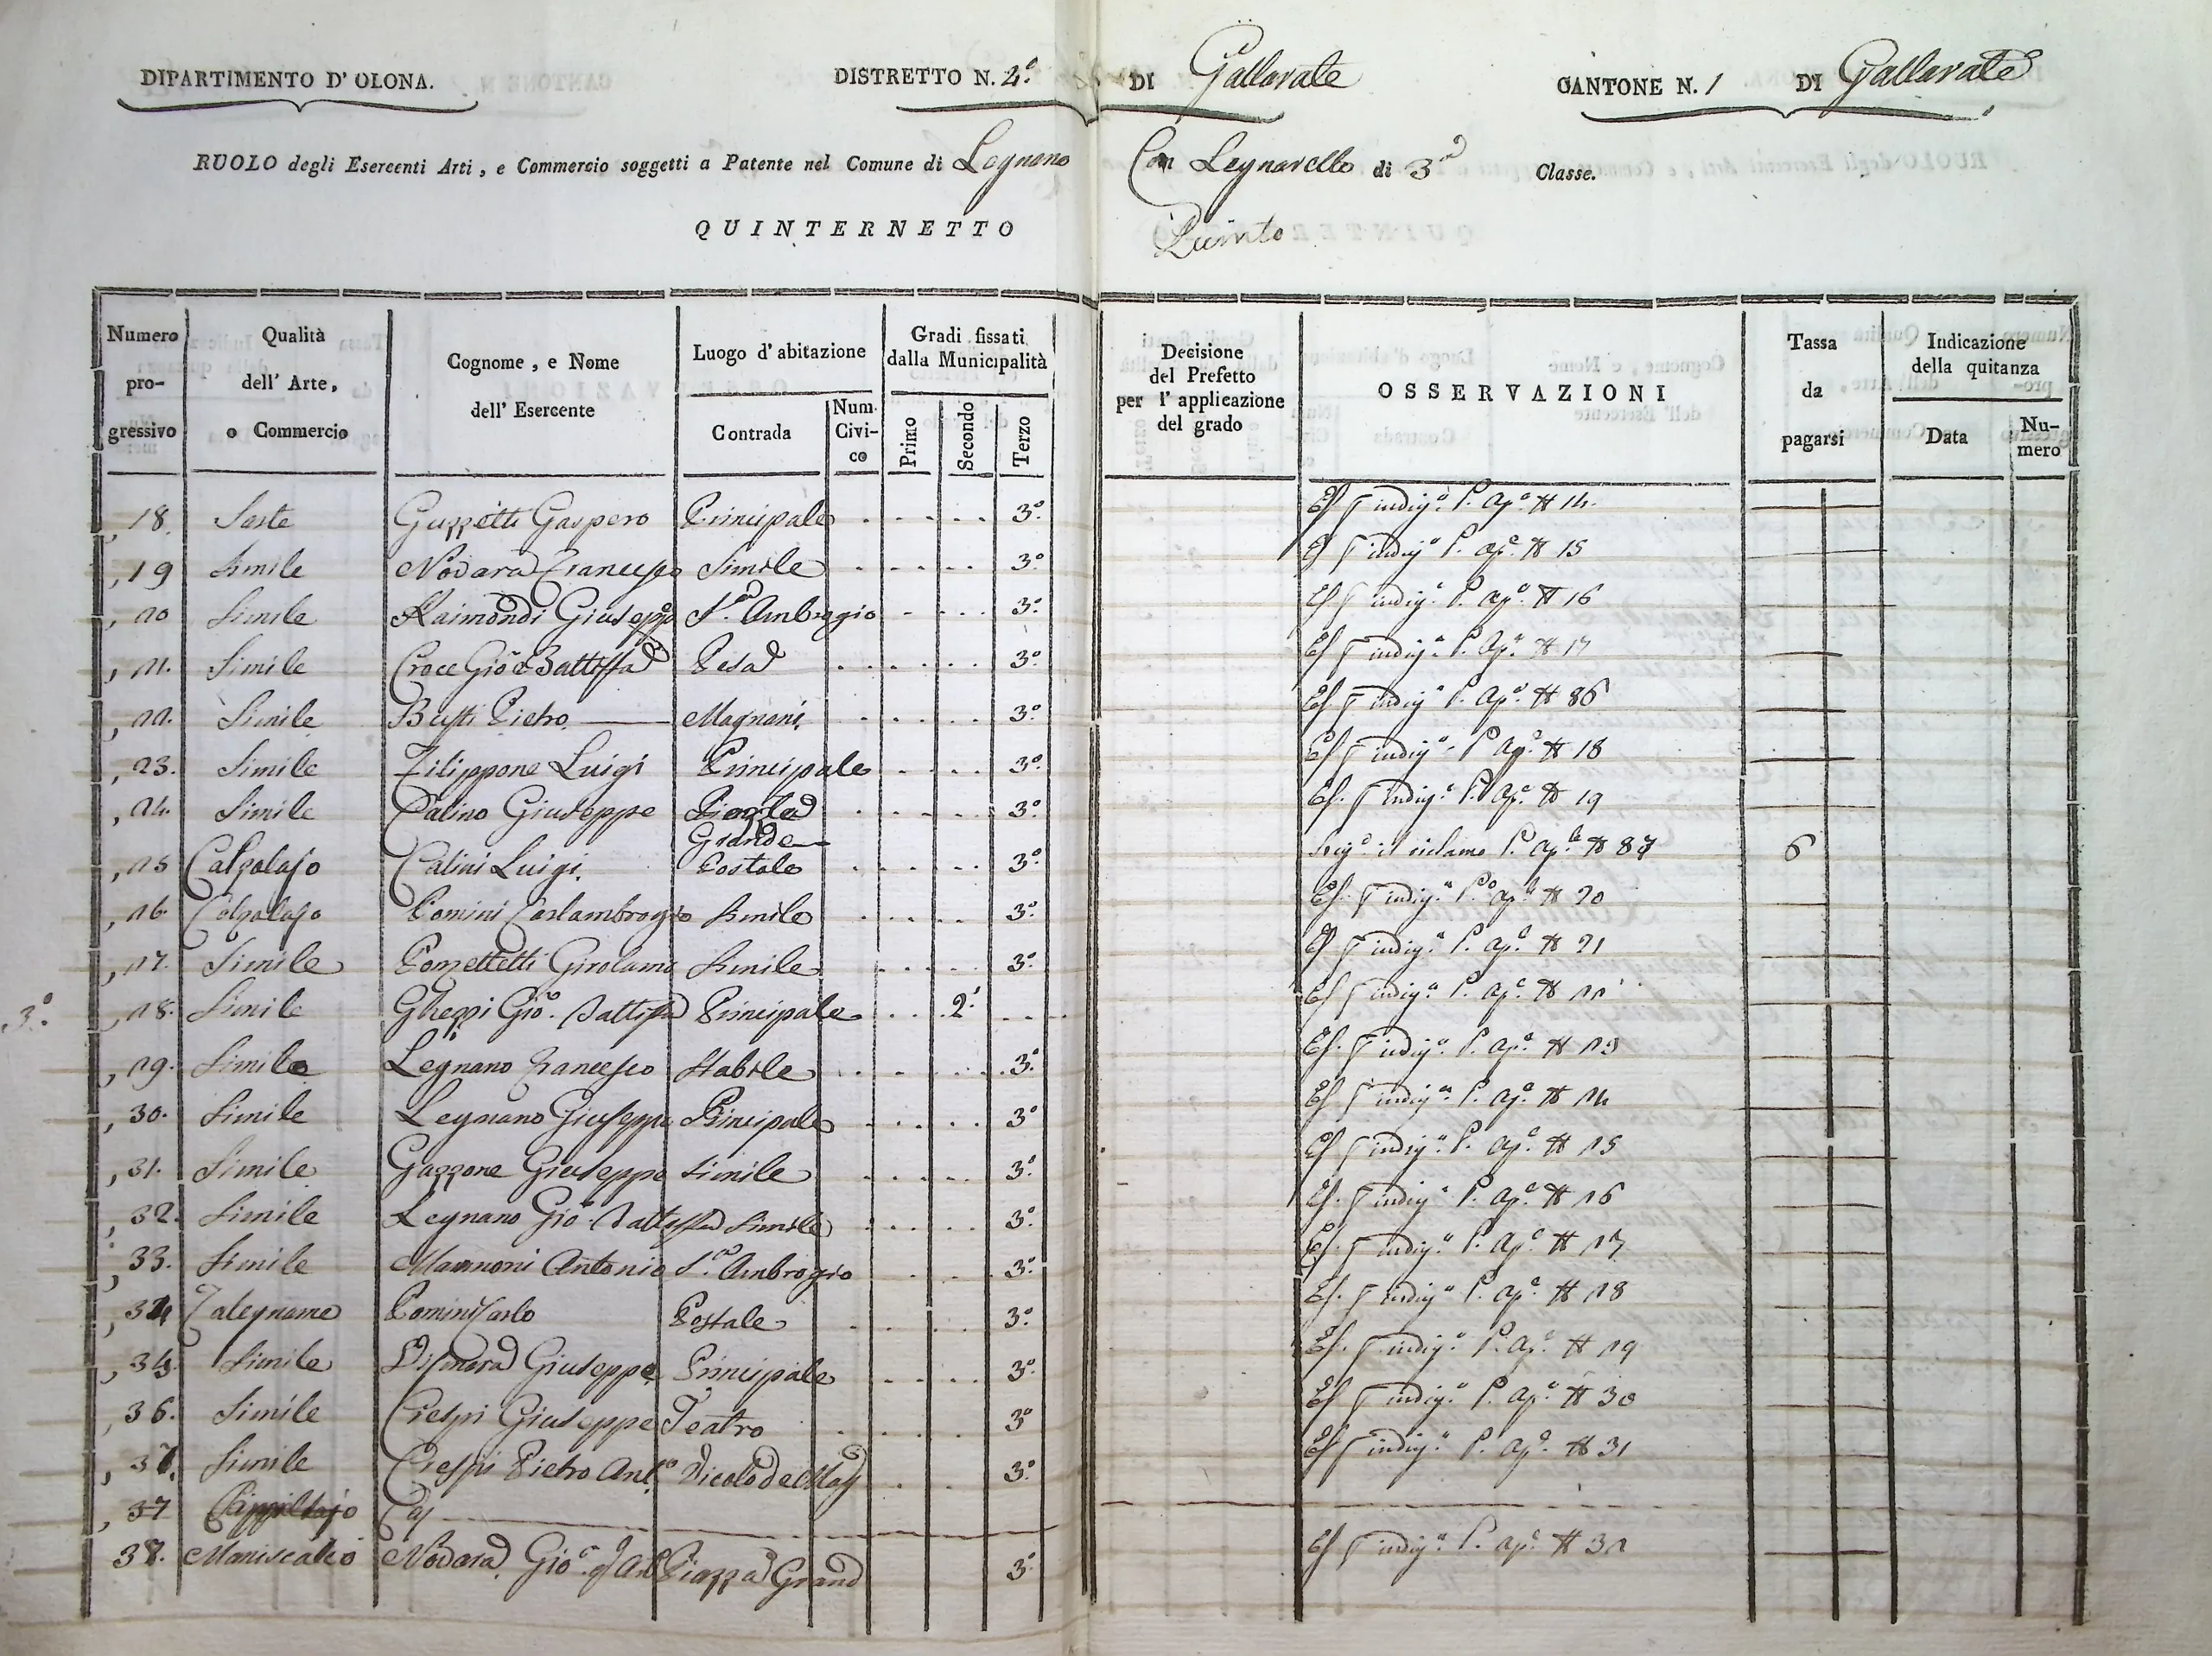 DIPARTIMENTO D' OLONA. DISTRETTO N. 4.º DI Gallarate CANTONE N. 1 DI Gallarate
RUOLO degli Esercenti Arti, e Commercio soggetti a Patente nel Comune di Legnano Con Legnarello di 3.ª Classe.
QUINTERNETTO Quinto
Numero progressivo
Qualità dell' Arte, o Commercio
Cognome, e Nome dell' Esercente
Luogo d' abitazione
Contrada
Num. Civico
Gradi fissati dalla Municipalità
Primo
Secondo
Terzo
Decisione del Prefetto per l' applicazione del grado
OSSERVAZIONI
Tassa da pagarsi
Indicazione della quitanza
Data
Numero
18. Sarte Guzzetti Gaspero Principale 3.º Es. indig.ª P. ap.e # 14.
19 Simile Novara Francesco Simile 3.º Es. indig.ª P. ap.e # 15
20 Simile Raimondi Giuseppe S. Ambrogio 3.º Es. indig.ª P. ap.e # 16
21. Simile Croce Gio Battista Pesa 3.º Es. indig.ª P. ap.e # 17
22. Simile Busti Pietro Magnani 3.º Es. indig.ª P. ap.e # 86
23. Simile Filippone Luigi Principale 3.º Es. indig.ª P. ap.e # 18
24. Simile Calino Giuseppe Piazza Grande 3.º Es. indig.ª P. ap.e # 19
25 Calzolajo Calini Luigi. Postale 3.º il reclamo P. ap.e # 87 6
26. Calzolajo Pomini Carlambrogio Simile 3.º Es. indig.ª P. ap.e # 20
27. Simile Girolamo Simile 3.º Es. indig.ª P. ap.e # 21
3.º 28. Simile Ghezzi Gio. Battista Principale 2.º Es. indig.ª P. ap.e # 22
29. Simile Legnano Francesco Stabile 3.º Es. indig.ª P. ap.e # 23
30. Simile Legnano Giuseppe Principale 3.º Es. indig.ª P. ap.e # 24
31. Simile Gazzone Giuseppe Simile 3.º Es. indig.ª P. ap.e # 25
32. Simile Legnano Gio. Battista Simile 3.º Es. indig.ª P. ap.e # 26
33. Simile Antonio S. Ambrogio 3.º Es. indig.ª P. ap.e # 27
34 Falegname Pomini Carlo Postale 3.º Es. indig.ª P. ap.e # 28
Simile Giuseppe Principale 3.º Es. indig.ª P. ap.e # 29
36. Simile Crespi Giuseppe Teatro 3.º Es. indig.ª P. ap.e # 30
Simile Crespi Pietro Ant.º Vicolo de 3.º Es. indig.ª P. ap.e # 31
37
38. Maniscalco Novara Gio. Piazza Grand 3.º Es. indig.ª P. ap.e # 32